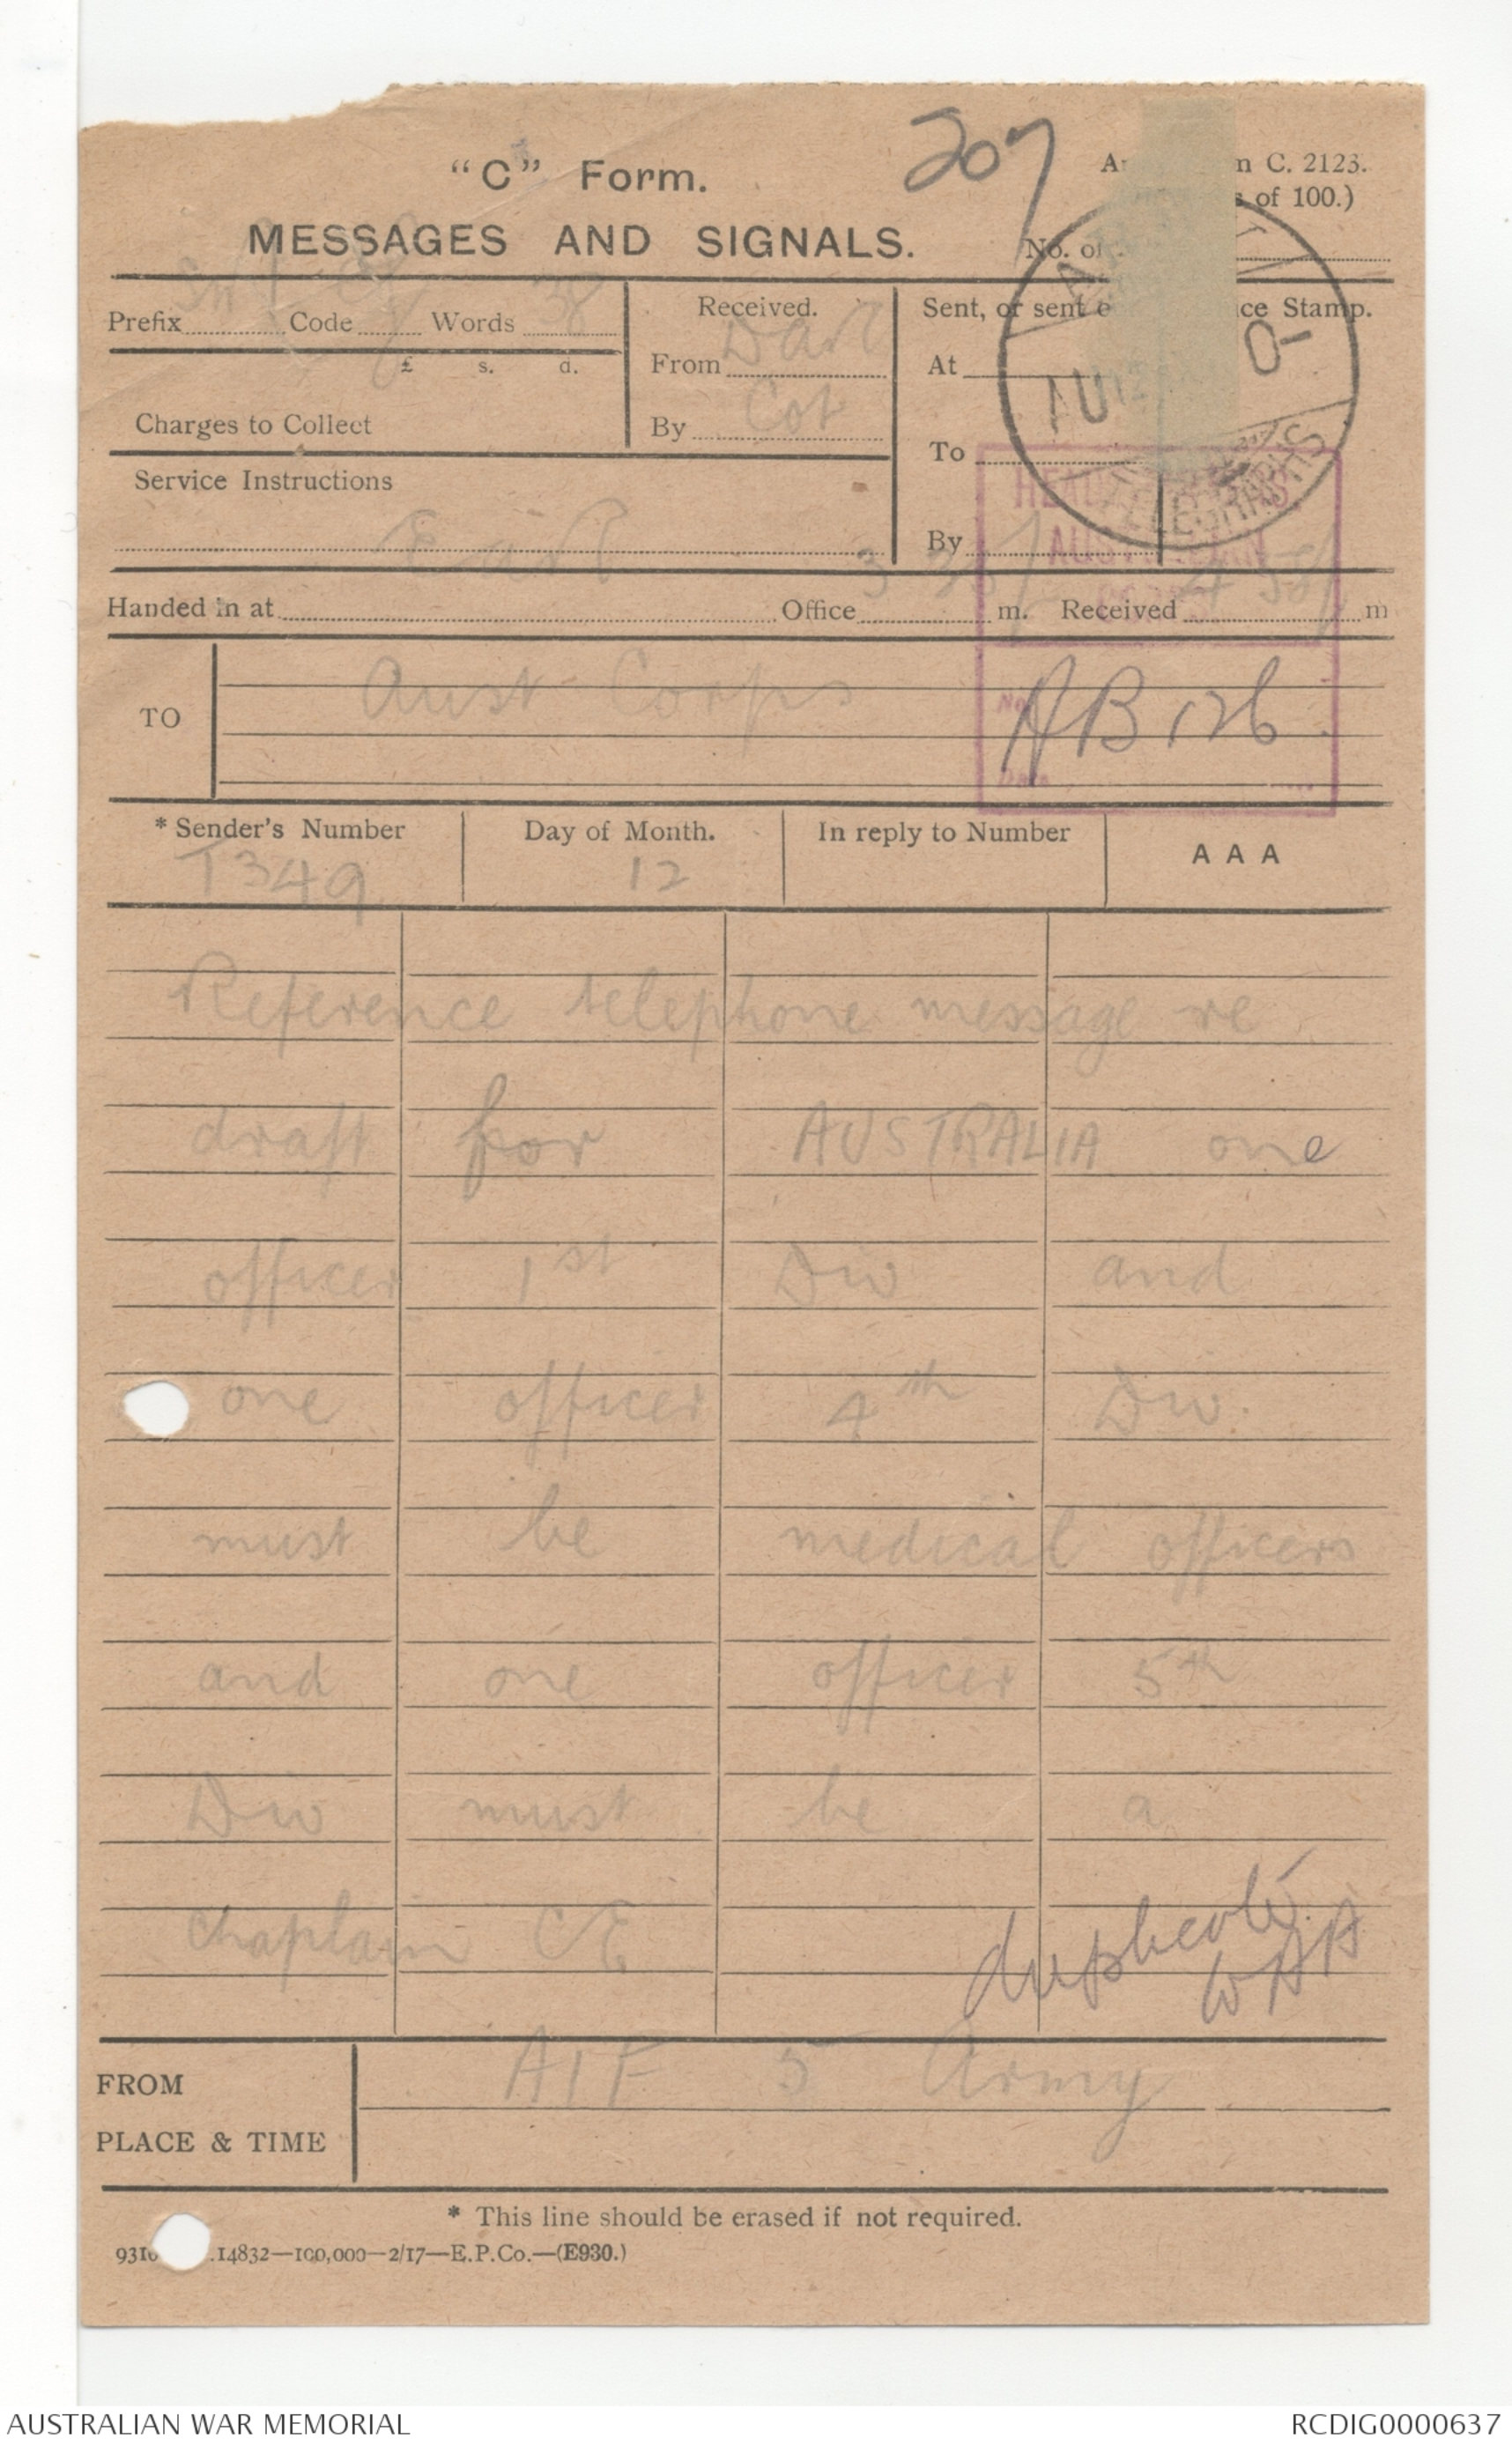 207
"C" Form.
MESSAGES AND SIGNALS.
C. 2123.
of 100.)
No. of
Prefix Code Words 38
£ s. d.
Charges to Collect
Received.
From
By
Sent, or sent
Stamp.
At
To
By
TELEGRAPHS
Service Instructions
Handed in at Office 3 m. Received 4 m
TO Aust Corps
No.
AB 126
Date
* Sender's Number
T349
Day of Month.
12
In reply to Number
AAA
Reference telephone message re
draft for AUSTRALIA one
officer 1st Div and
one officer 4th Div.
must be medical officers
and one officer 5th
Div must be a
Chaplain CE
duplicate
FROM AIF 5 Army
PLACE & TIME
* This line should be erased if not required.
14832—100,000—2/17—E.P.Co.—(E930.)
AUSTRALIAN WAR MEMORIAL
RCDIG0000637